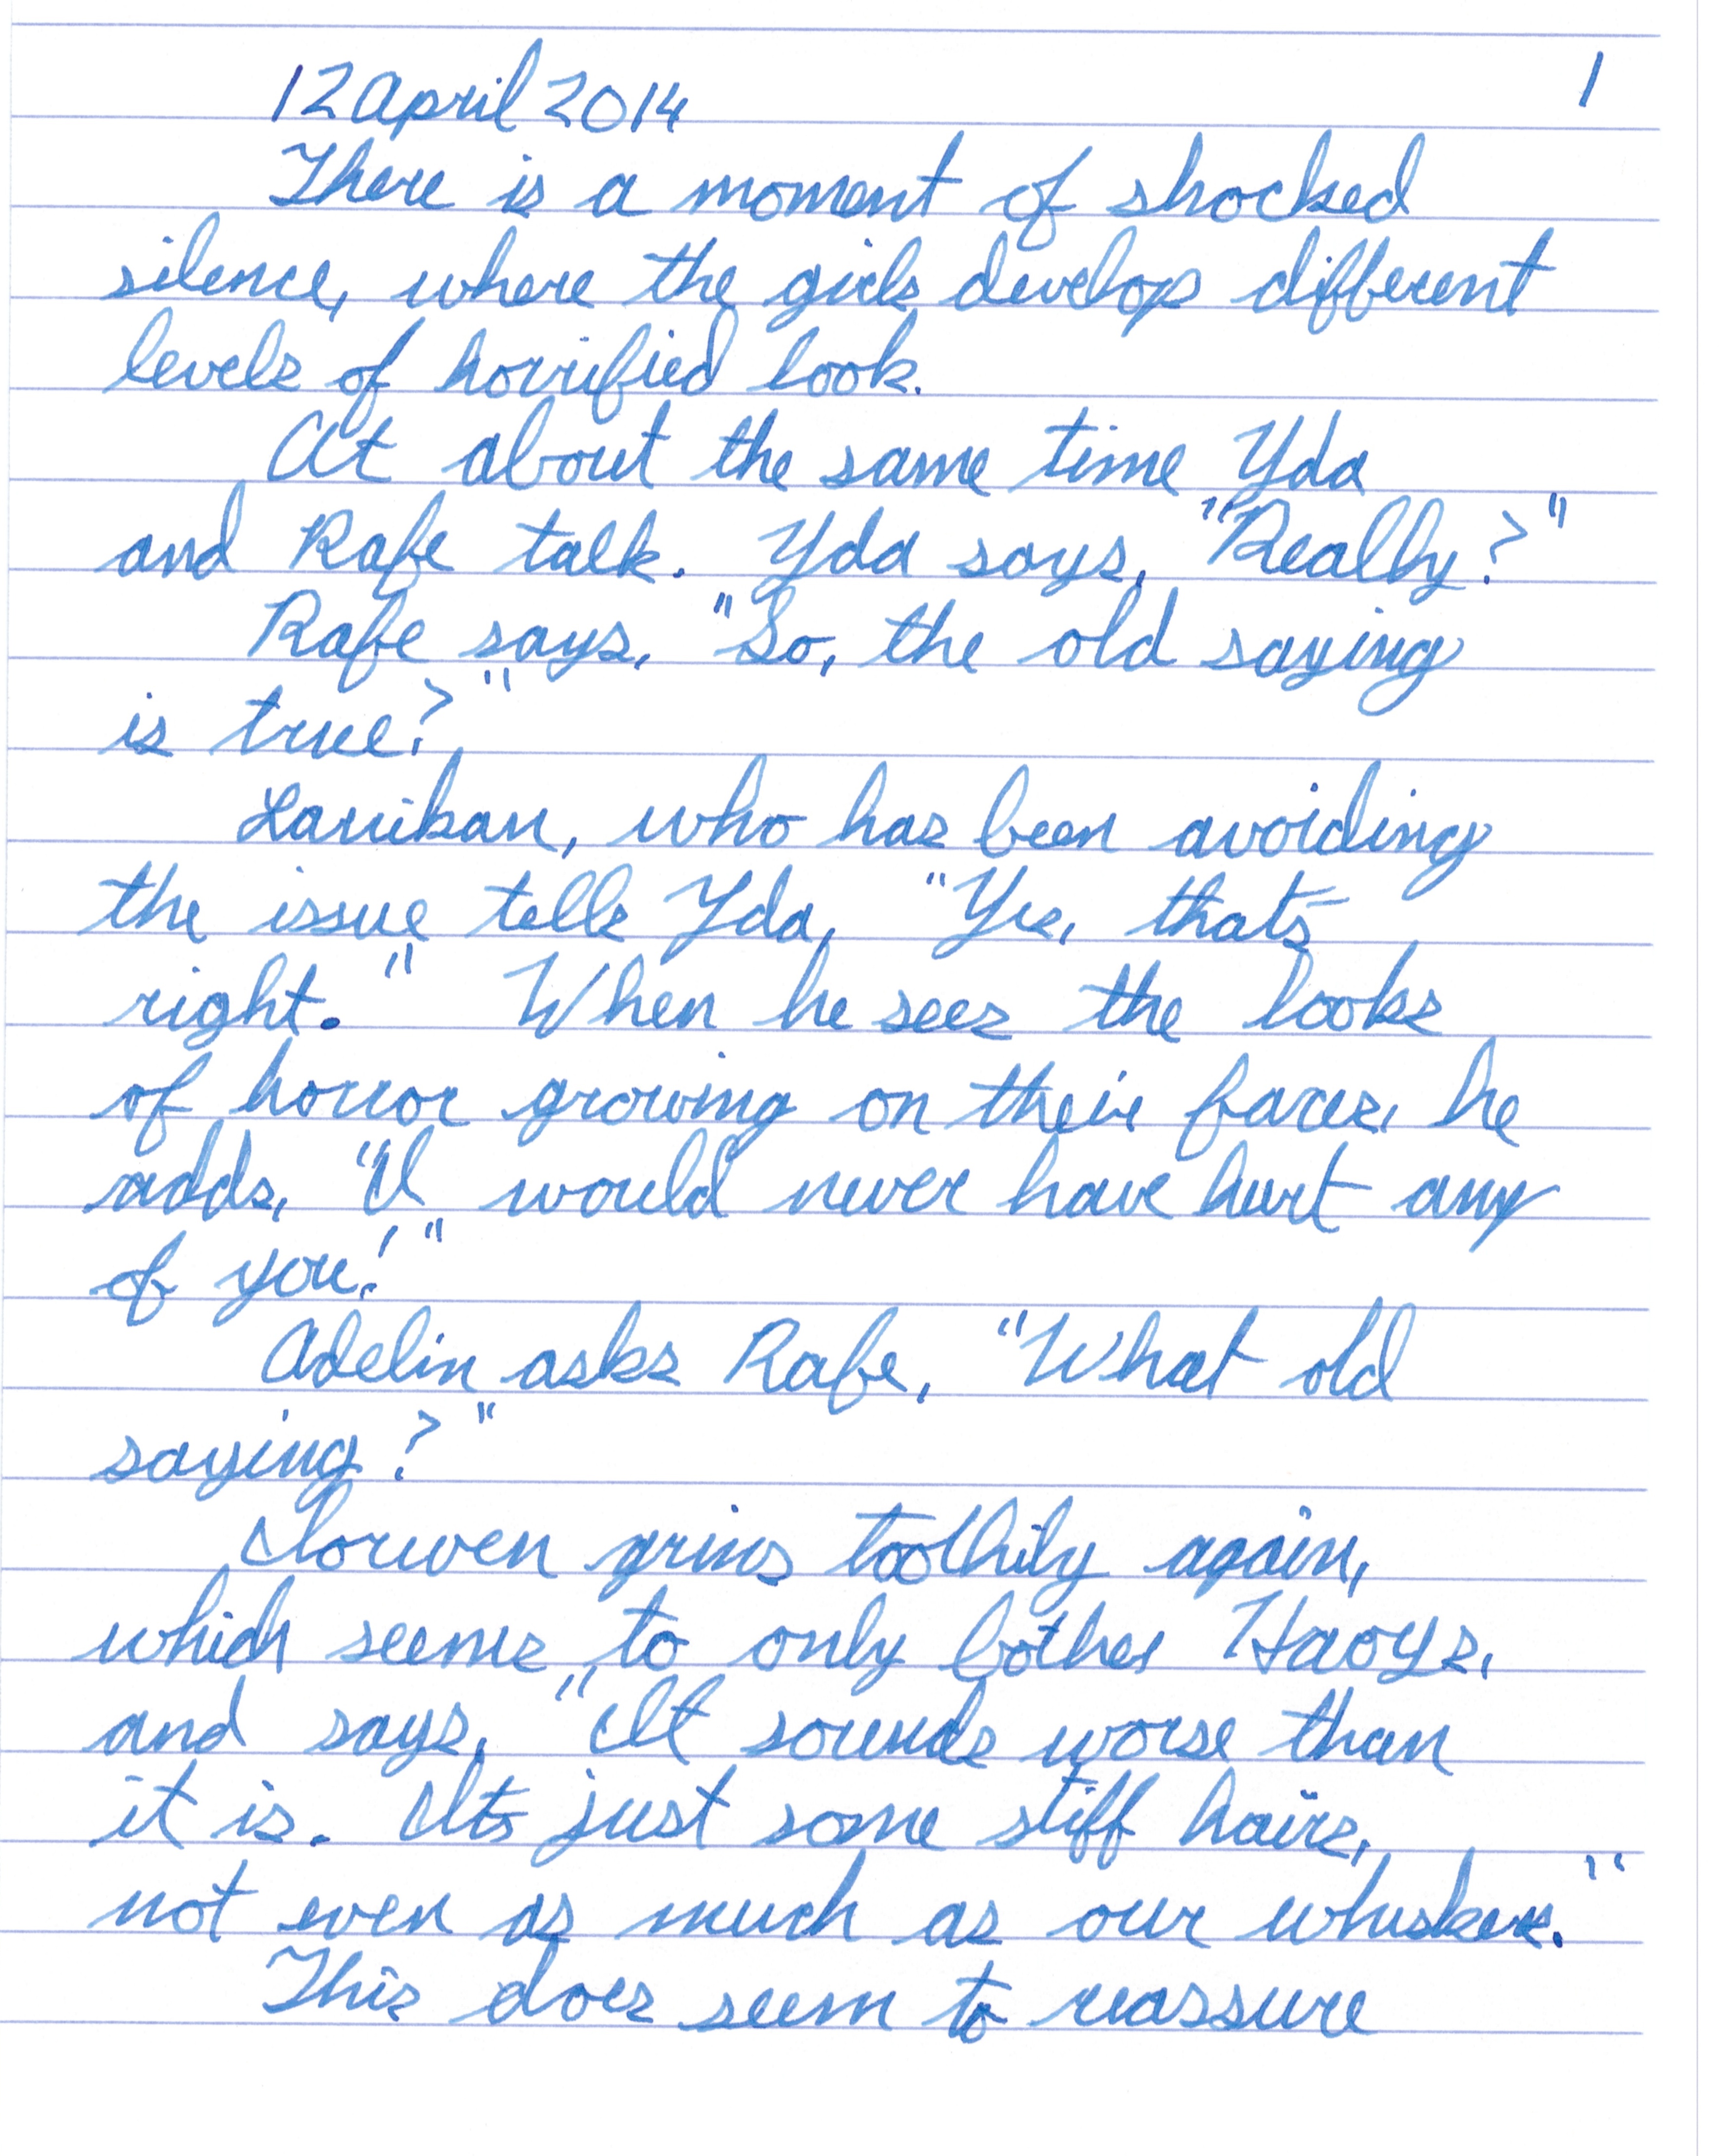 12 April 2014 1
There is a moment of shocked
silence, where the girls develop different
levels of horrified look.
At about the same time Yda
and Rafe talk. Yda says, "Really?"
Rafe says, "So, the old saying
is true?"
Larikan, who has been avoiding
the issue tells Yda, "Yes, that's
right." When he sees the looks
of horror growing on their faces, he
adds, "I would never have hurt any
of you!"
Adelin asks Rafe, "What old
saying?"
Iorwen grins toothily again,
which seems to only bother Haoys,
and says, "It sounds worse than
it is. It's just some stiff hairs,
not even as much as our whiskers."
This does seem to reassure